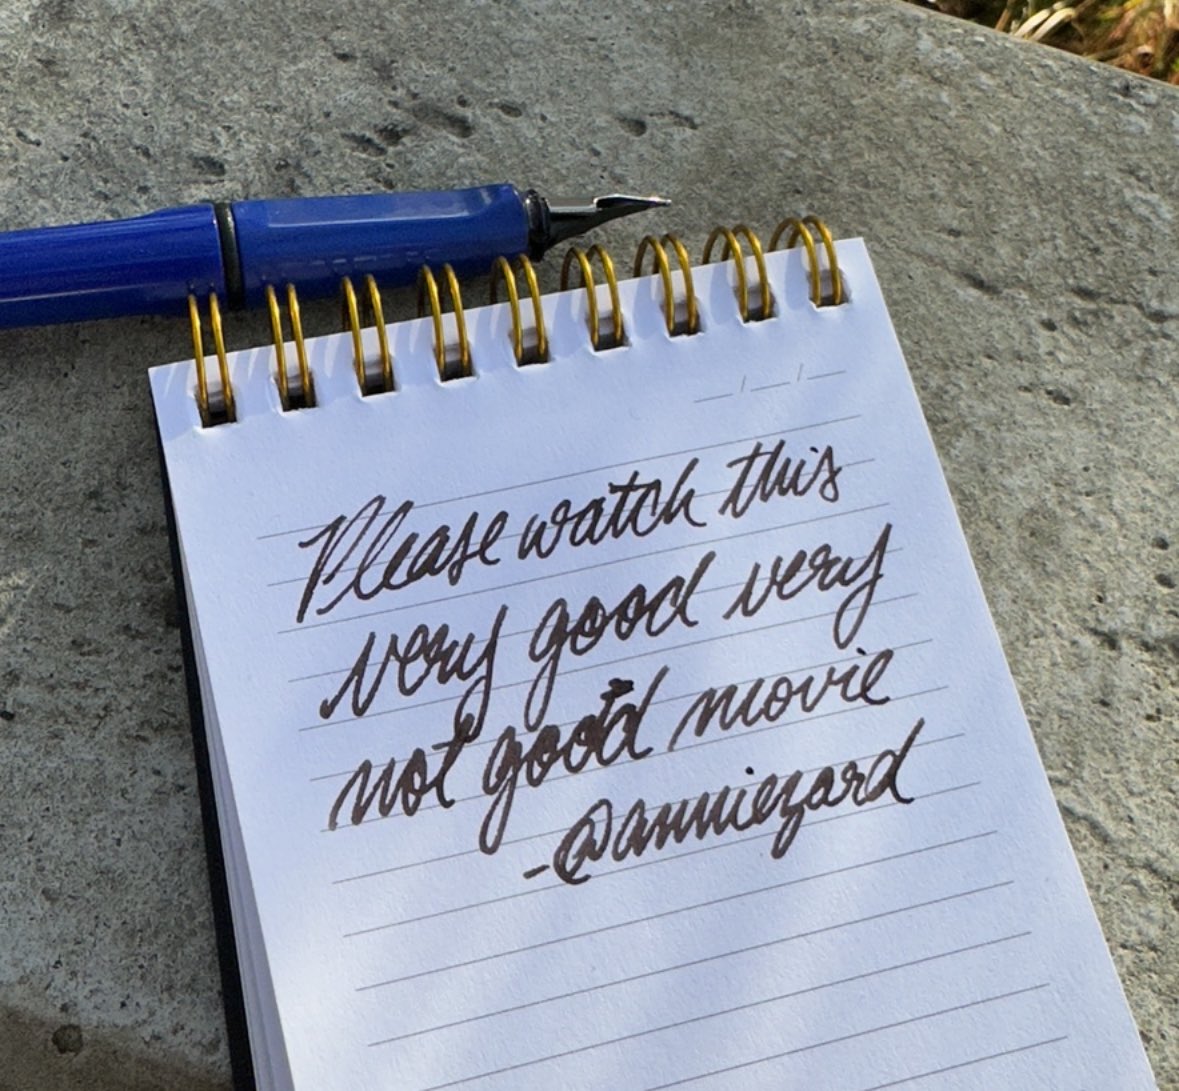 Please watch this
very good very
not good movie
-@anniezard